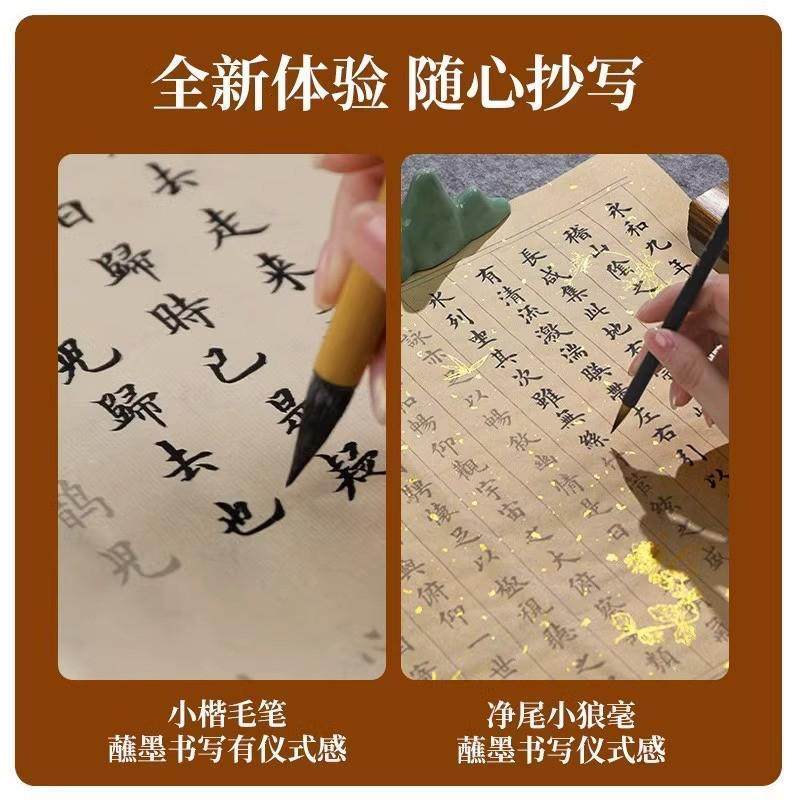 全新体验 随心抄写
去走来
日歸時已是疑
兒歸去也
兒
永和九年
稽山陰之
長咸集此地有崇
有清流激湍映帶左右引以
水列坐其次雖無絲竹管絃之盛
詠亦足以暢敘幽情是日
暢仰觀宇宙之大俯察類
騁懷足以極視聽之
俯仰一世
小楷毛笔
蘸墨书写有仪式感
净尾小狼毫
蘸墨书写仪式感